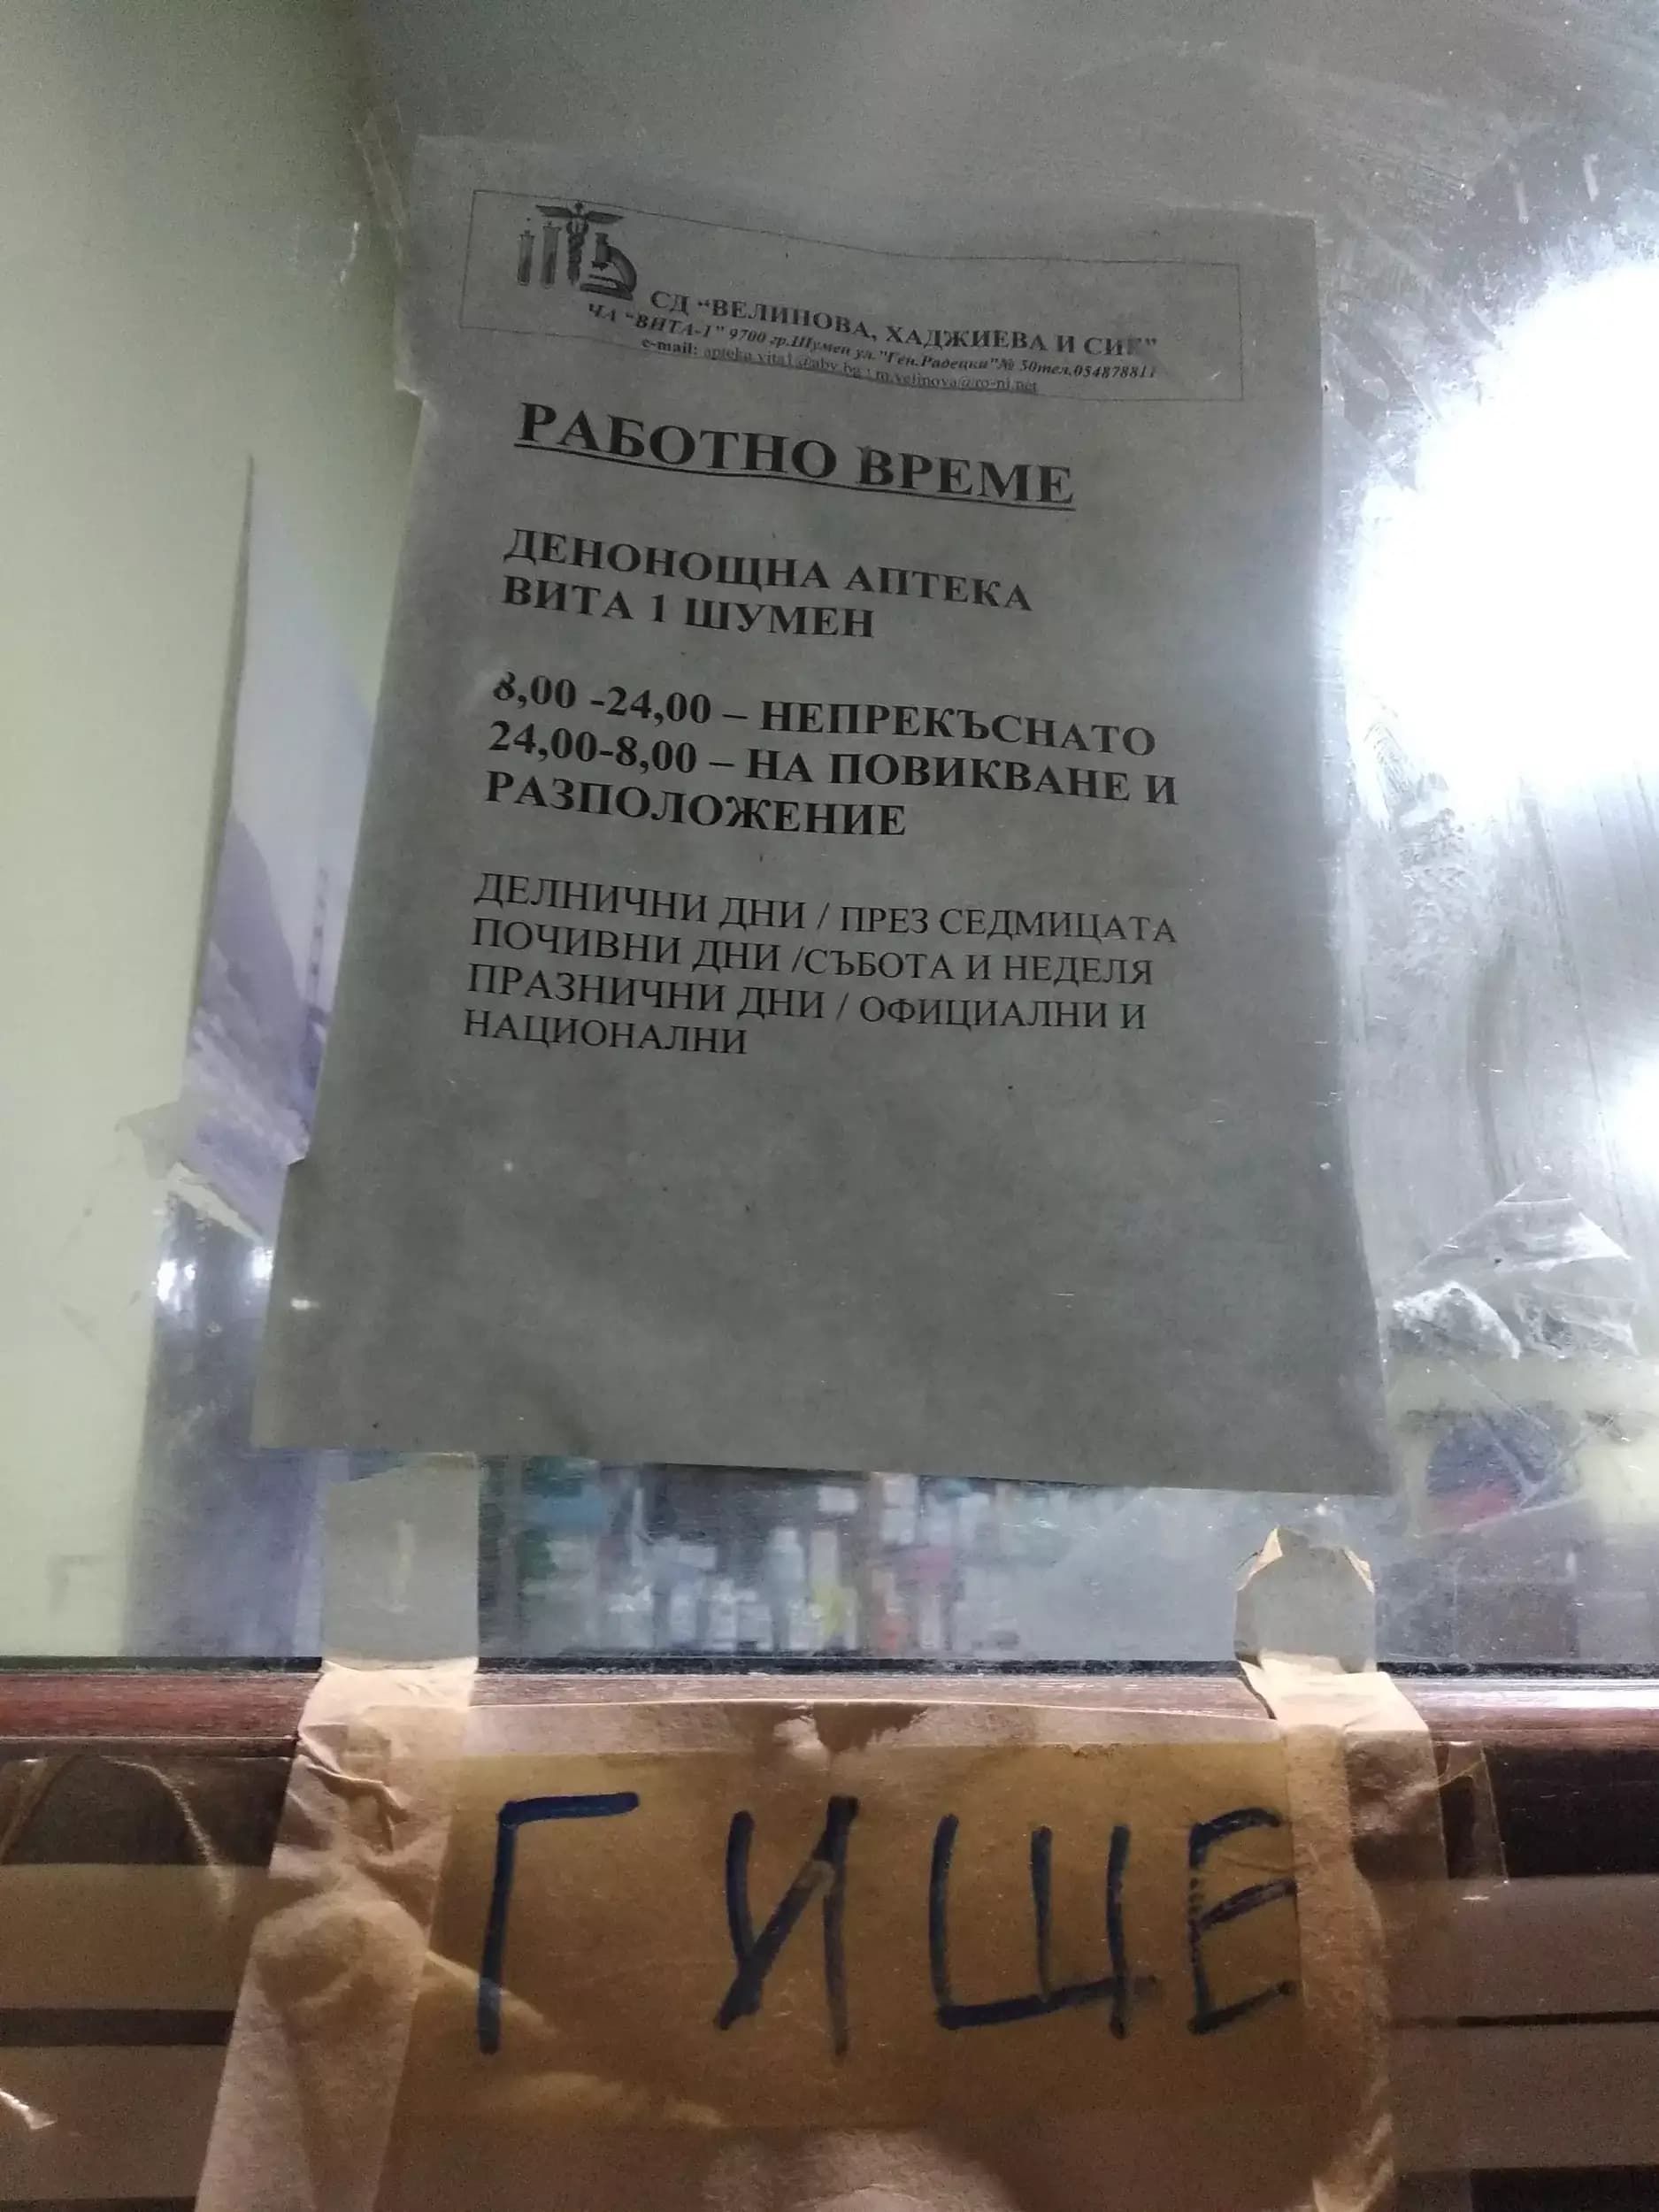 СД “ВЕЛИНОВА, ХАДЖИЕВА И СИЕ”
ЧА “ВИТА-1” 9700 гр.Шумен ул."Ген.Радецки"№ 50тел.054878811
e-mail: apteka.vita1@abv.bg ; m.velinova@ro-ni.net
РАБОТНО ВРЕМЕ
ДЕНОНОЩНА АПТЕКА
ВИТА 1 ШУМЕН
8,00 -24,00 – НЕПРЕКЪСНАТО
24,00-8,00 – НА ПОВИКВАНЕ И
РАЗПОЛОЖЕНИЕ
ДЕЛНИЧНИ ДНИ / ПРЕЗ СЕДМИЦАТА
ПОЧИВНИ ДНИ /СЪБОТА И НЕДЕЛЯ
ПРАЗНИЧНИ ДНИ / ОФИЦИАЛНИ И
НАЦИОНАЛНИ
ГИШЕ